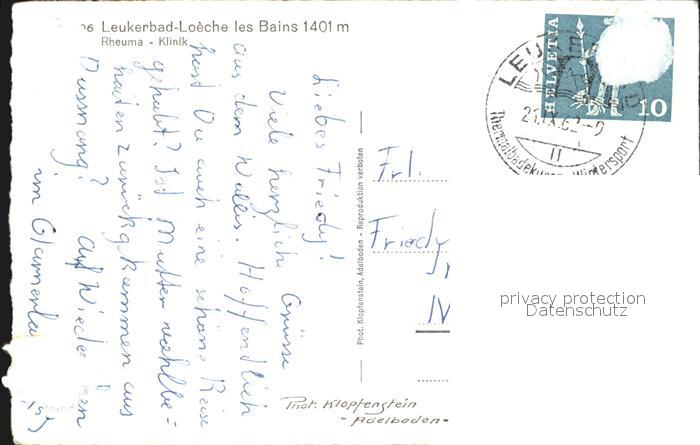 26 Leukerbad-Loèche les Bains 1401 m
Rheuma - Klinik
Liebes Friedy!
Viele herzliche Grüsse
aus dem Wallis. Hoffendlich
hast Du auch eine schöne Reise
gehabt? Ist Mutter wohlbe-
halten zurückgekommen aus
Dussnang? Auf Wieder
im Glarnerla
Phot. Klopfenstein, Adelboden - Reproduktion verboten
Phot. Klopfenstein
- Adelboden -
Frl.
Friedy
HELVETIA
10
LEU
21.IX.62
11
Thermalbadekuren Wintersport
privacy protection
Datenschutz